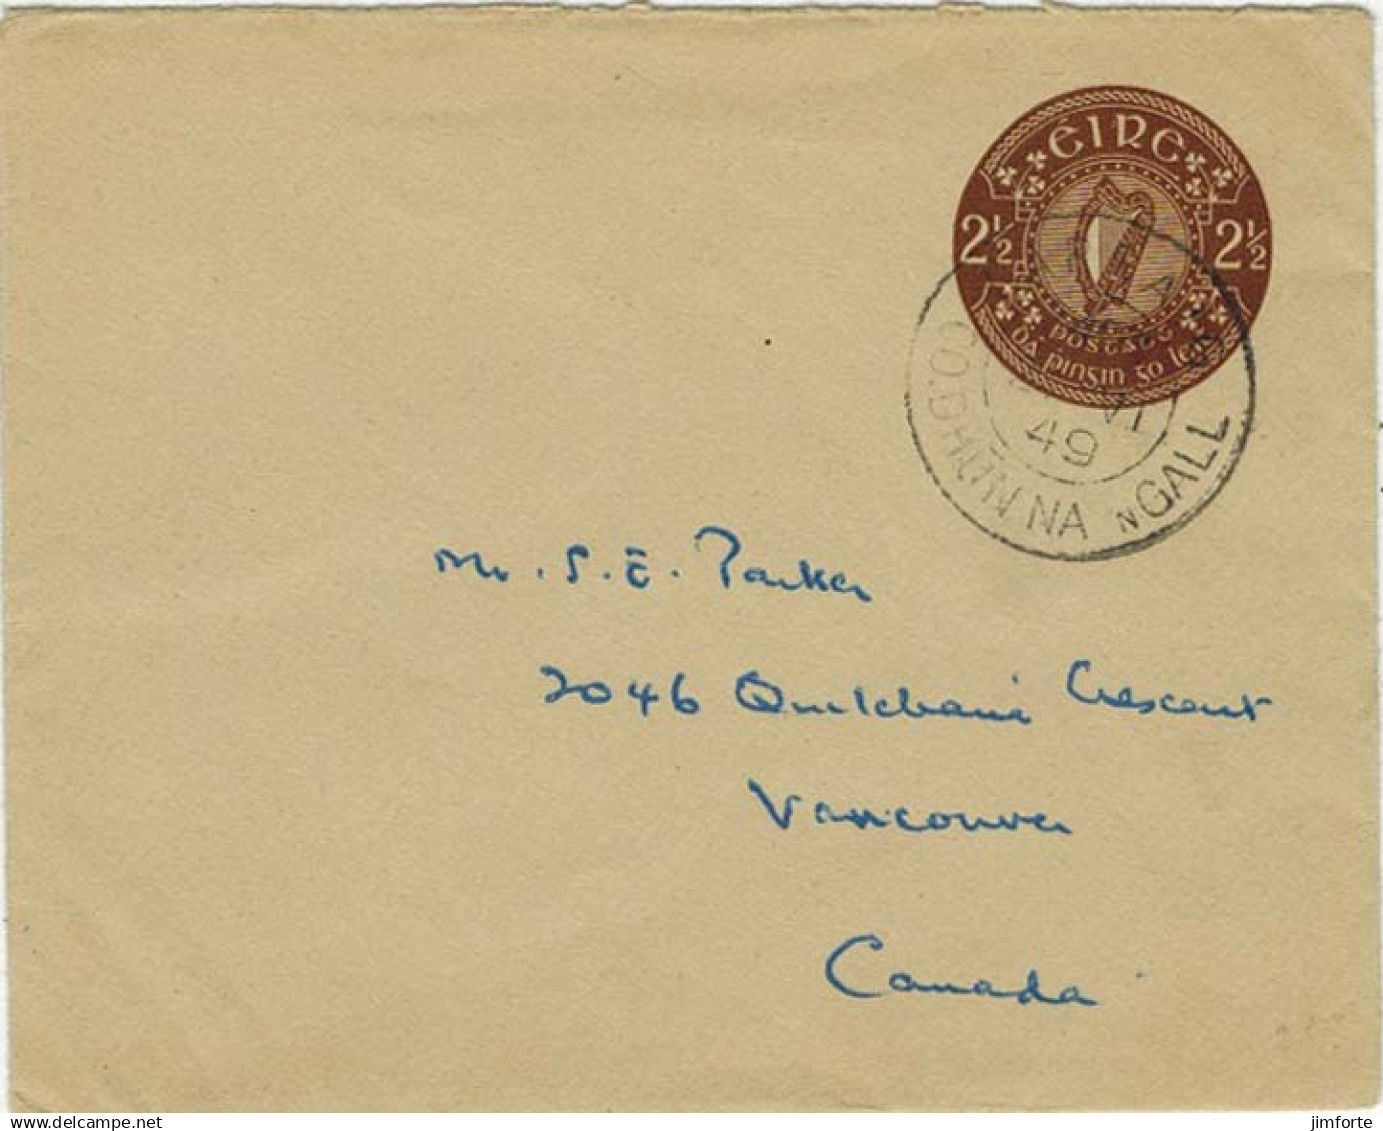 ÉIRE
2½ 2½
POSTAGE
DÁ PINGIN GO LEIT
VI
49
CO. DHÚN NA NGALL
Mr. S. E. Parker
2046 Crescent
Vancouver
Canada
www.delcampe.net
jimforte